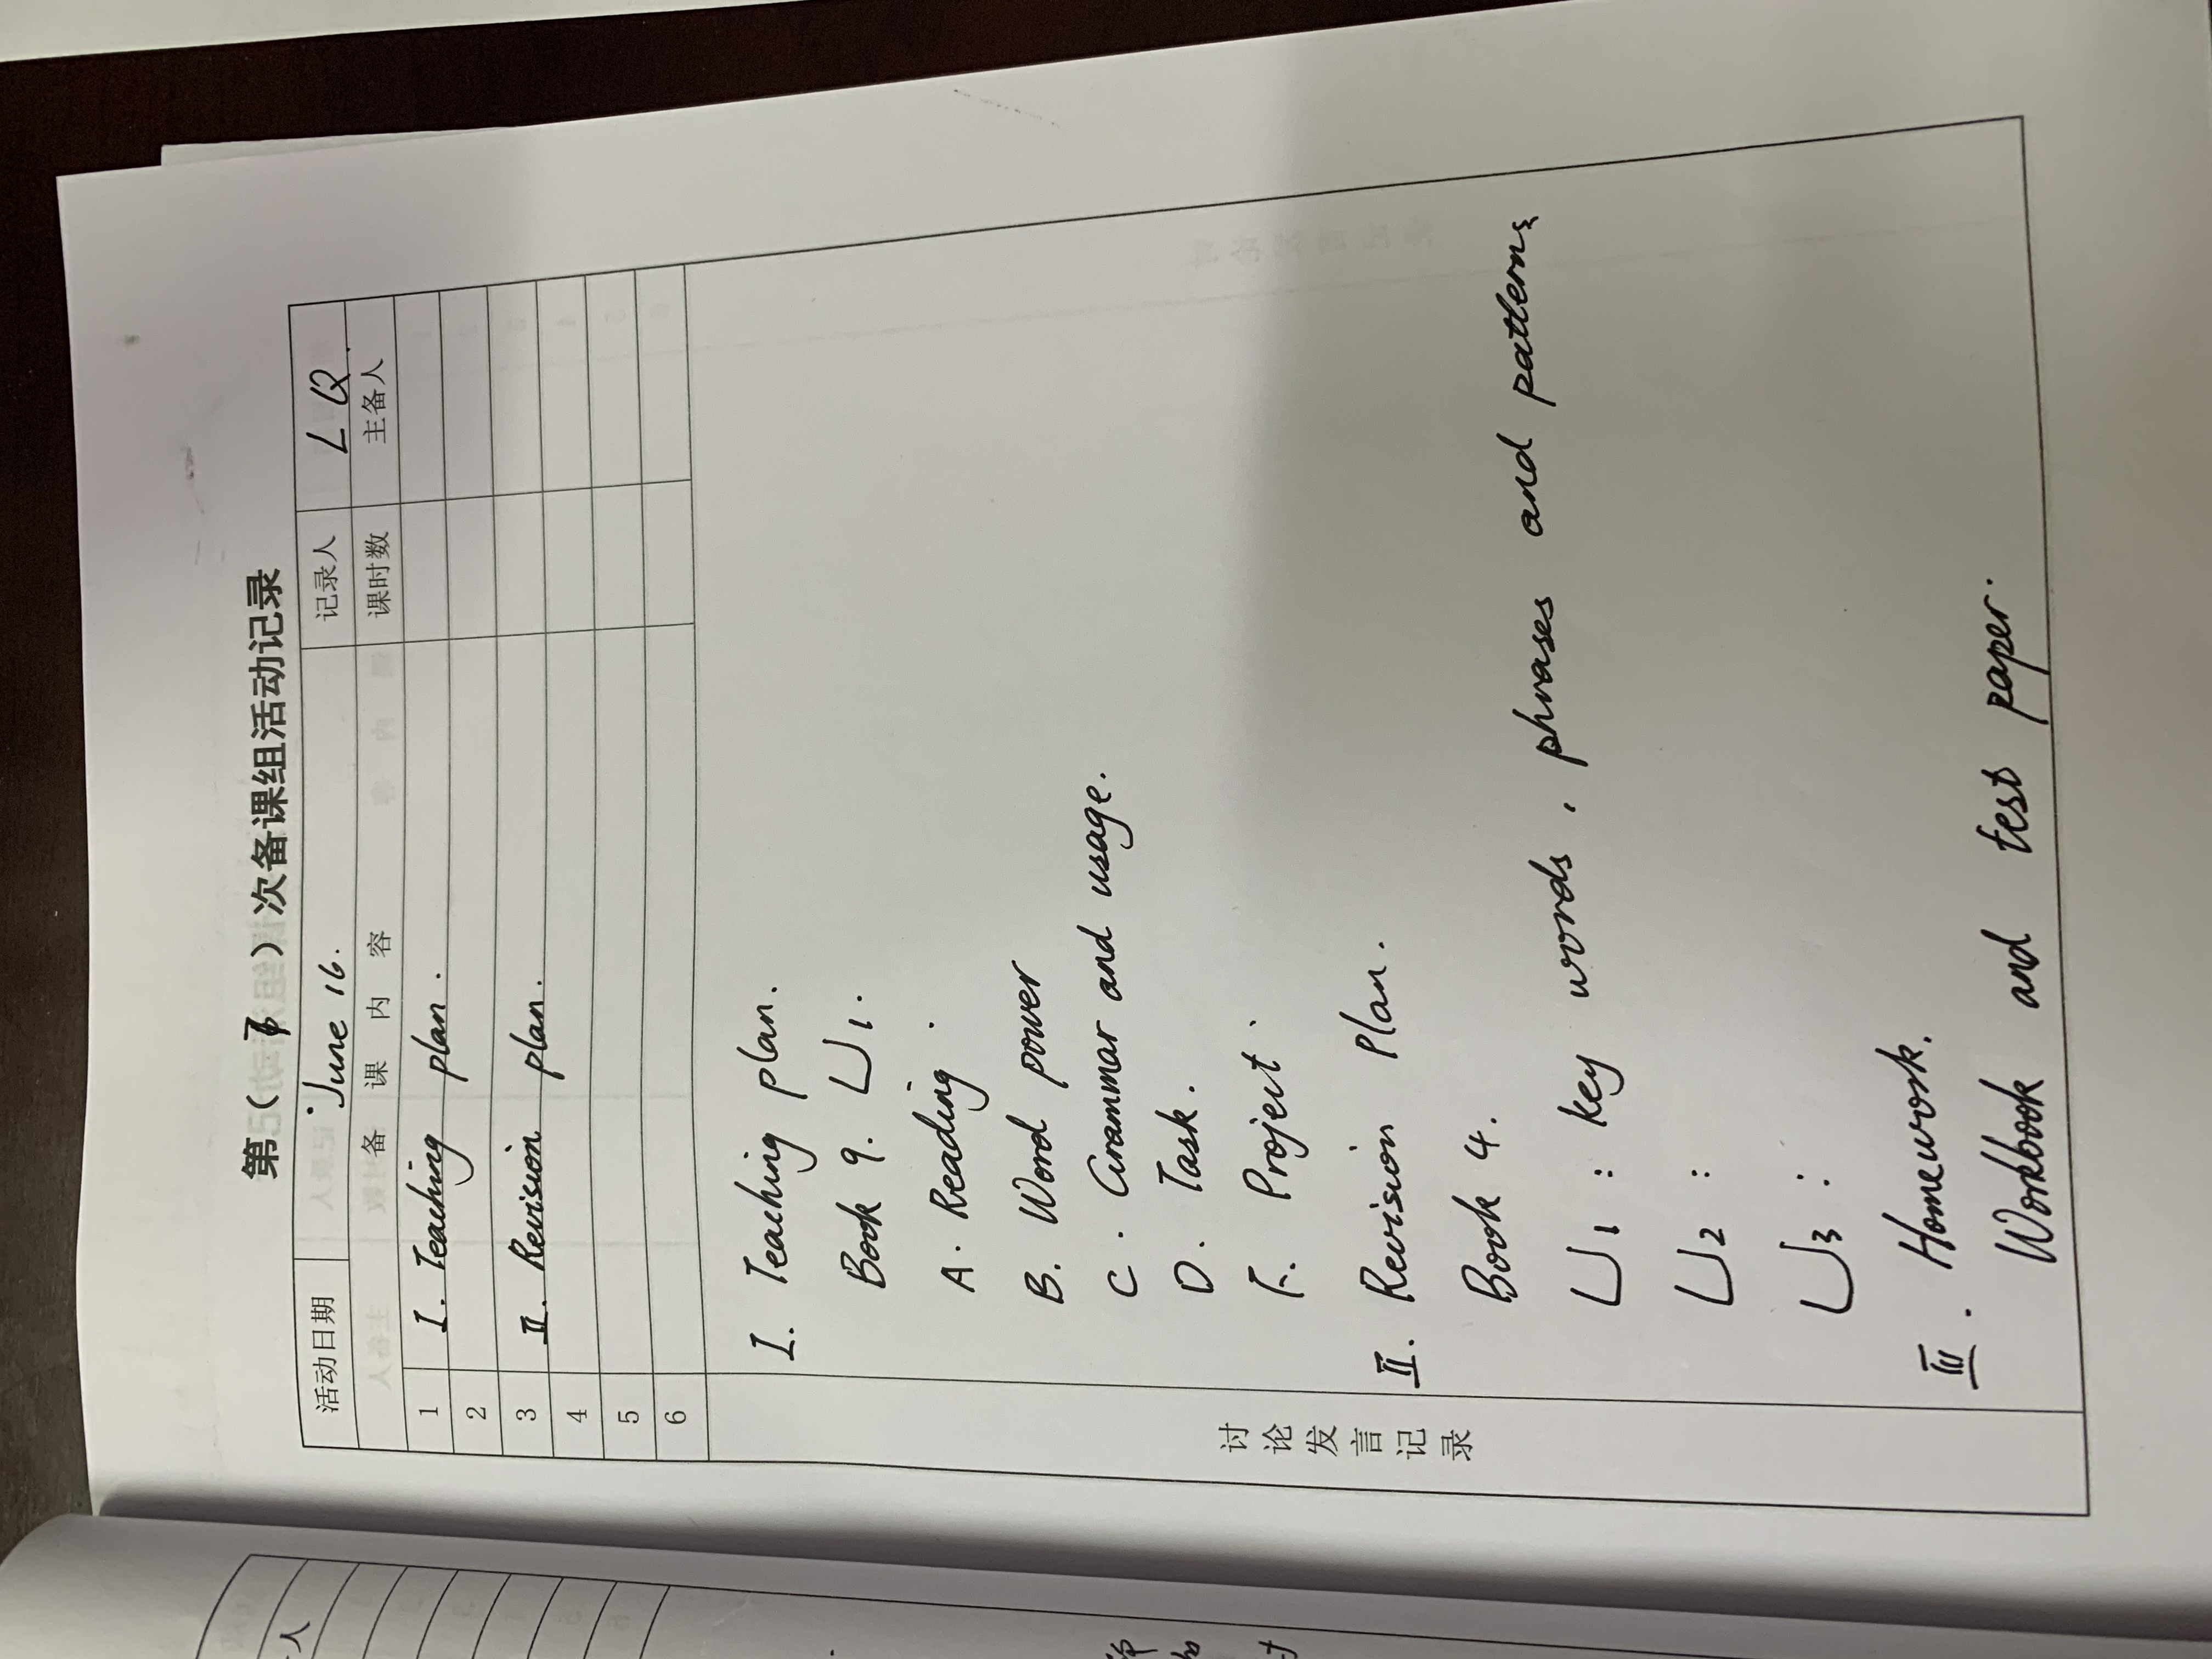 第（7）次备课组活动记录
活动日期 June 16. 记录人 LQ.
备 课 内 容 课时数 主备人
1 I. Teaching plan.
2
3 II. Revision plan.
4
5
6
讨论发言记录
I. Teaching plan.
Book 9. U1.
A. Reading.
B. Word power
C. Grammar and usage.
D. Task.
Project.
II. Revision Plan.
Book 4.
U1: key words, phrases and patterns
U2:
U3:
III. Homework.
Workbook and test paper.